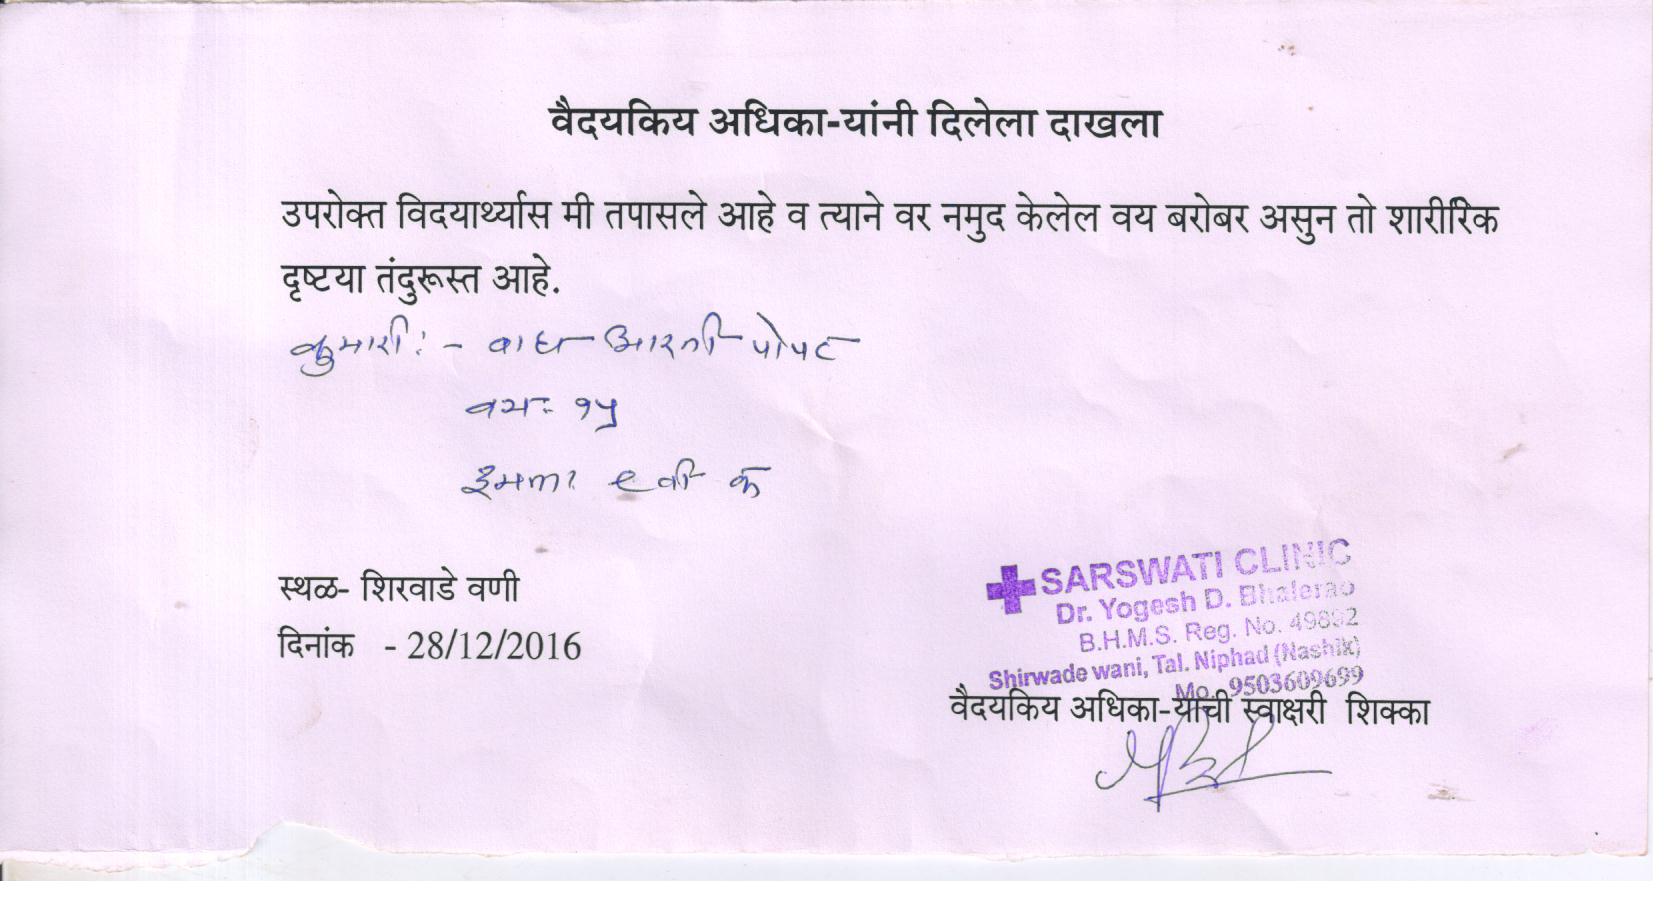 वैदयकिय अधिका-यांनी दिलेला दाखला
उपरोक्त विदयार्थ्यास मी तपासले आहे व त्याने वर नमुद केलेल वय बरोबर असुन तो शारीरिक
दृष्टया तंदुरूस्त आहे.
कुमारी:- वाघ आरती पोपट
वय:- १५
इयत्ता ९ वी क
स्थळ- शिरवाडे वणी
दिनांक - 28/12/2016
SARSWATI CLINIC
Dr. Yogesh D. Bhalerao
B.H.M.S. Reg. No.
Shirwade wani, Tal. Niphad (Nashik)
Mo. 9503609699
वैदयकिय अधिका-यांची स्वाक्षरी शिक्का